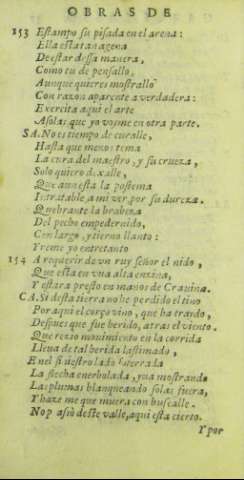 OBRAS DE
153 Estampo su pisada en el arena:
Ella está tan agena
De estar dessa manera,
Como tu de pensallo,
Aunque quieres mostrallo
Con razon aparente a verdadera:
Exercita aqui el arte
A solas que yo voyme en otra parte.
SA. No es tiempo de curalle,
Hasta que menos tema
La cura del maestro, y su crueza,
Solo quiero dexalle,
Que aun esta la postema
Intratable, a mi ver, por su dureza.
Quebrante la braueza
Del pecho empedernido,
Con largo, y tierno llanto:
Yreme yo entretanto
154 A requerir de vn ruy señor el nido,
Que esta en vna alta enzina,
Y estara presto en manos de Grauina.
CA. Si desta tierra no he perdido el tino
Por aqui el corço vino, que ha traydo,
Despues que fue herido, atras el viento.
Que rezio mouimiento en la corrida
Lleua de tal herida lastimado,
En el siniestro lado enterrada
La flecha enerbolada, yua mostrando
Las plumas blanqueando solas fuera,
Y haze me que muera con buscalle.
No passò deste valle, aqui esta cierto.
Y por